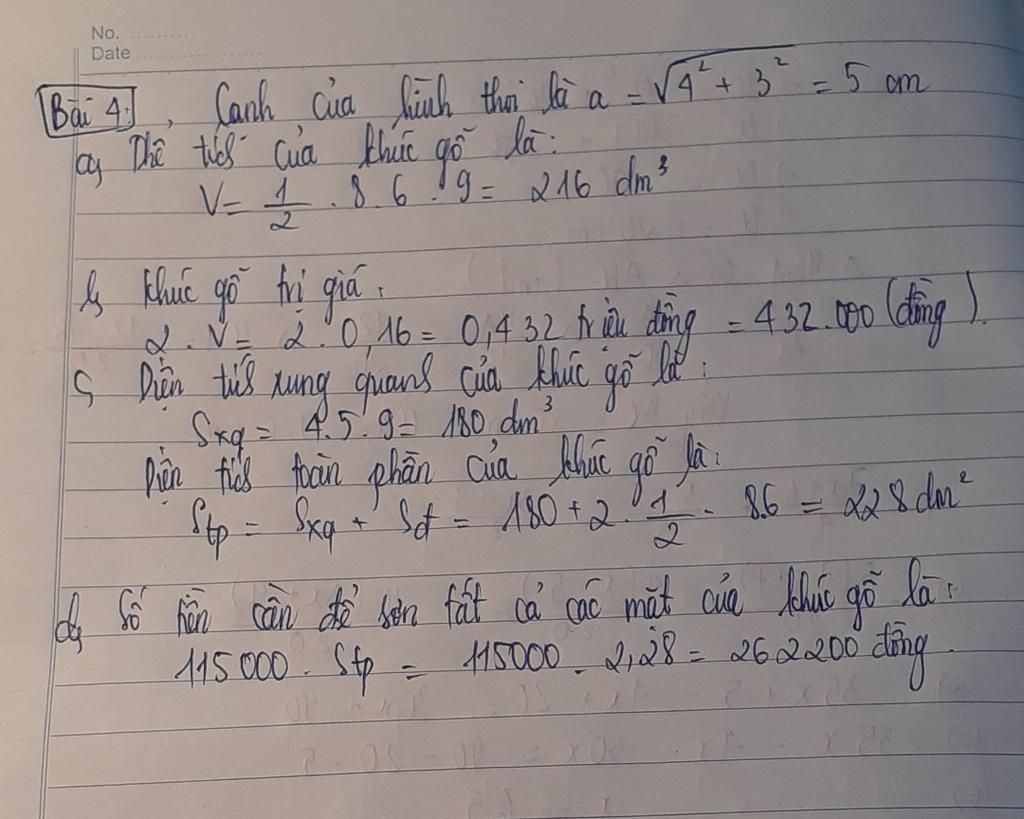 No. ..........
Date ......................
Bài 4:, Cạnh của hình thoi là a = √4² + 3² = 5 cm
a, Thể tích của khúc gỗ là:
V = 1/2 . 8 . 6 . 9 = 216 dm³
b, Khúc gỗ trị giá:
2 . V = 2 . 0,16 = 0,432 triệu đồng = 432.000 (đồng).
c, Diện tích xung quanh của khúc gỗ là:
Sxq = 4.5.9 = 180 dm³
Diện tích toàn phần của khúc gỗ là:
Stp = Sxq + Sđ = 180 + 2 . 1/2 . 8.6 = 228 dm²
d, Số tiền cần để sơn tất cả các mặt của khúc gỗ là:
115000 . Stp = 115000 . 2,28 = 262200 đồng.